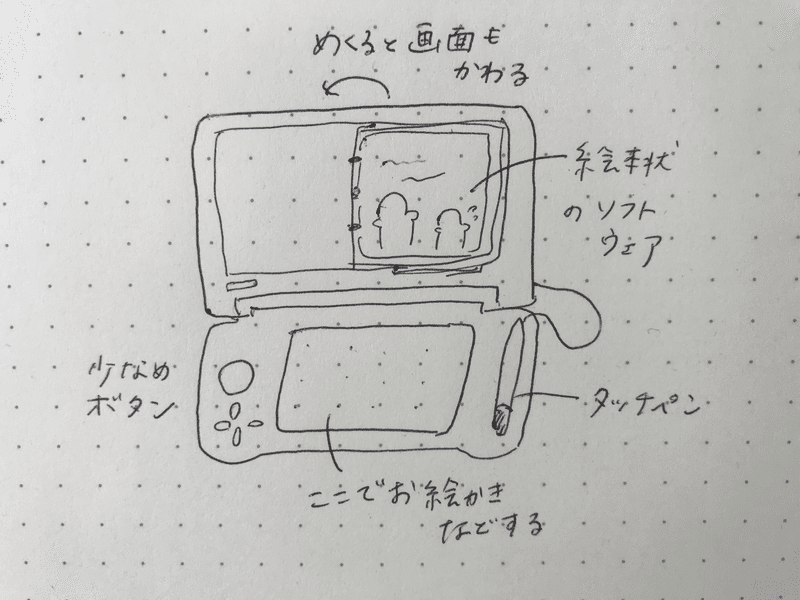 めくると画面も
かわる
絵本状
のソフト
ウェア
少なめ
ボタン
タッチペン
ここでお絵かき
などする